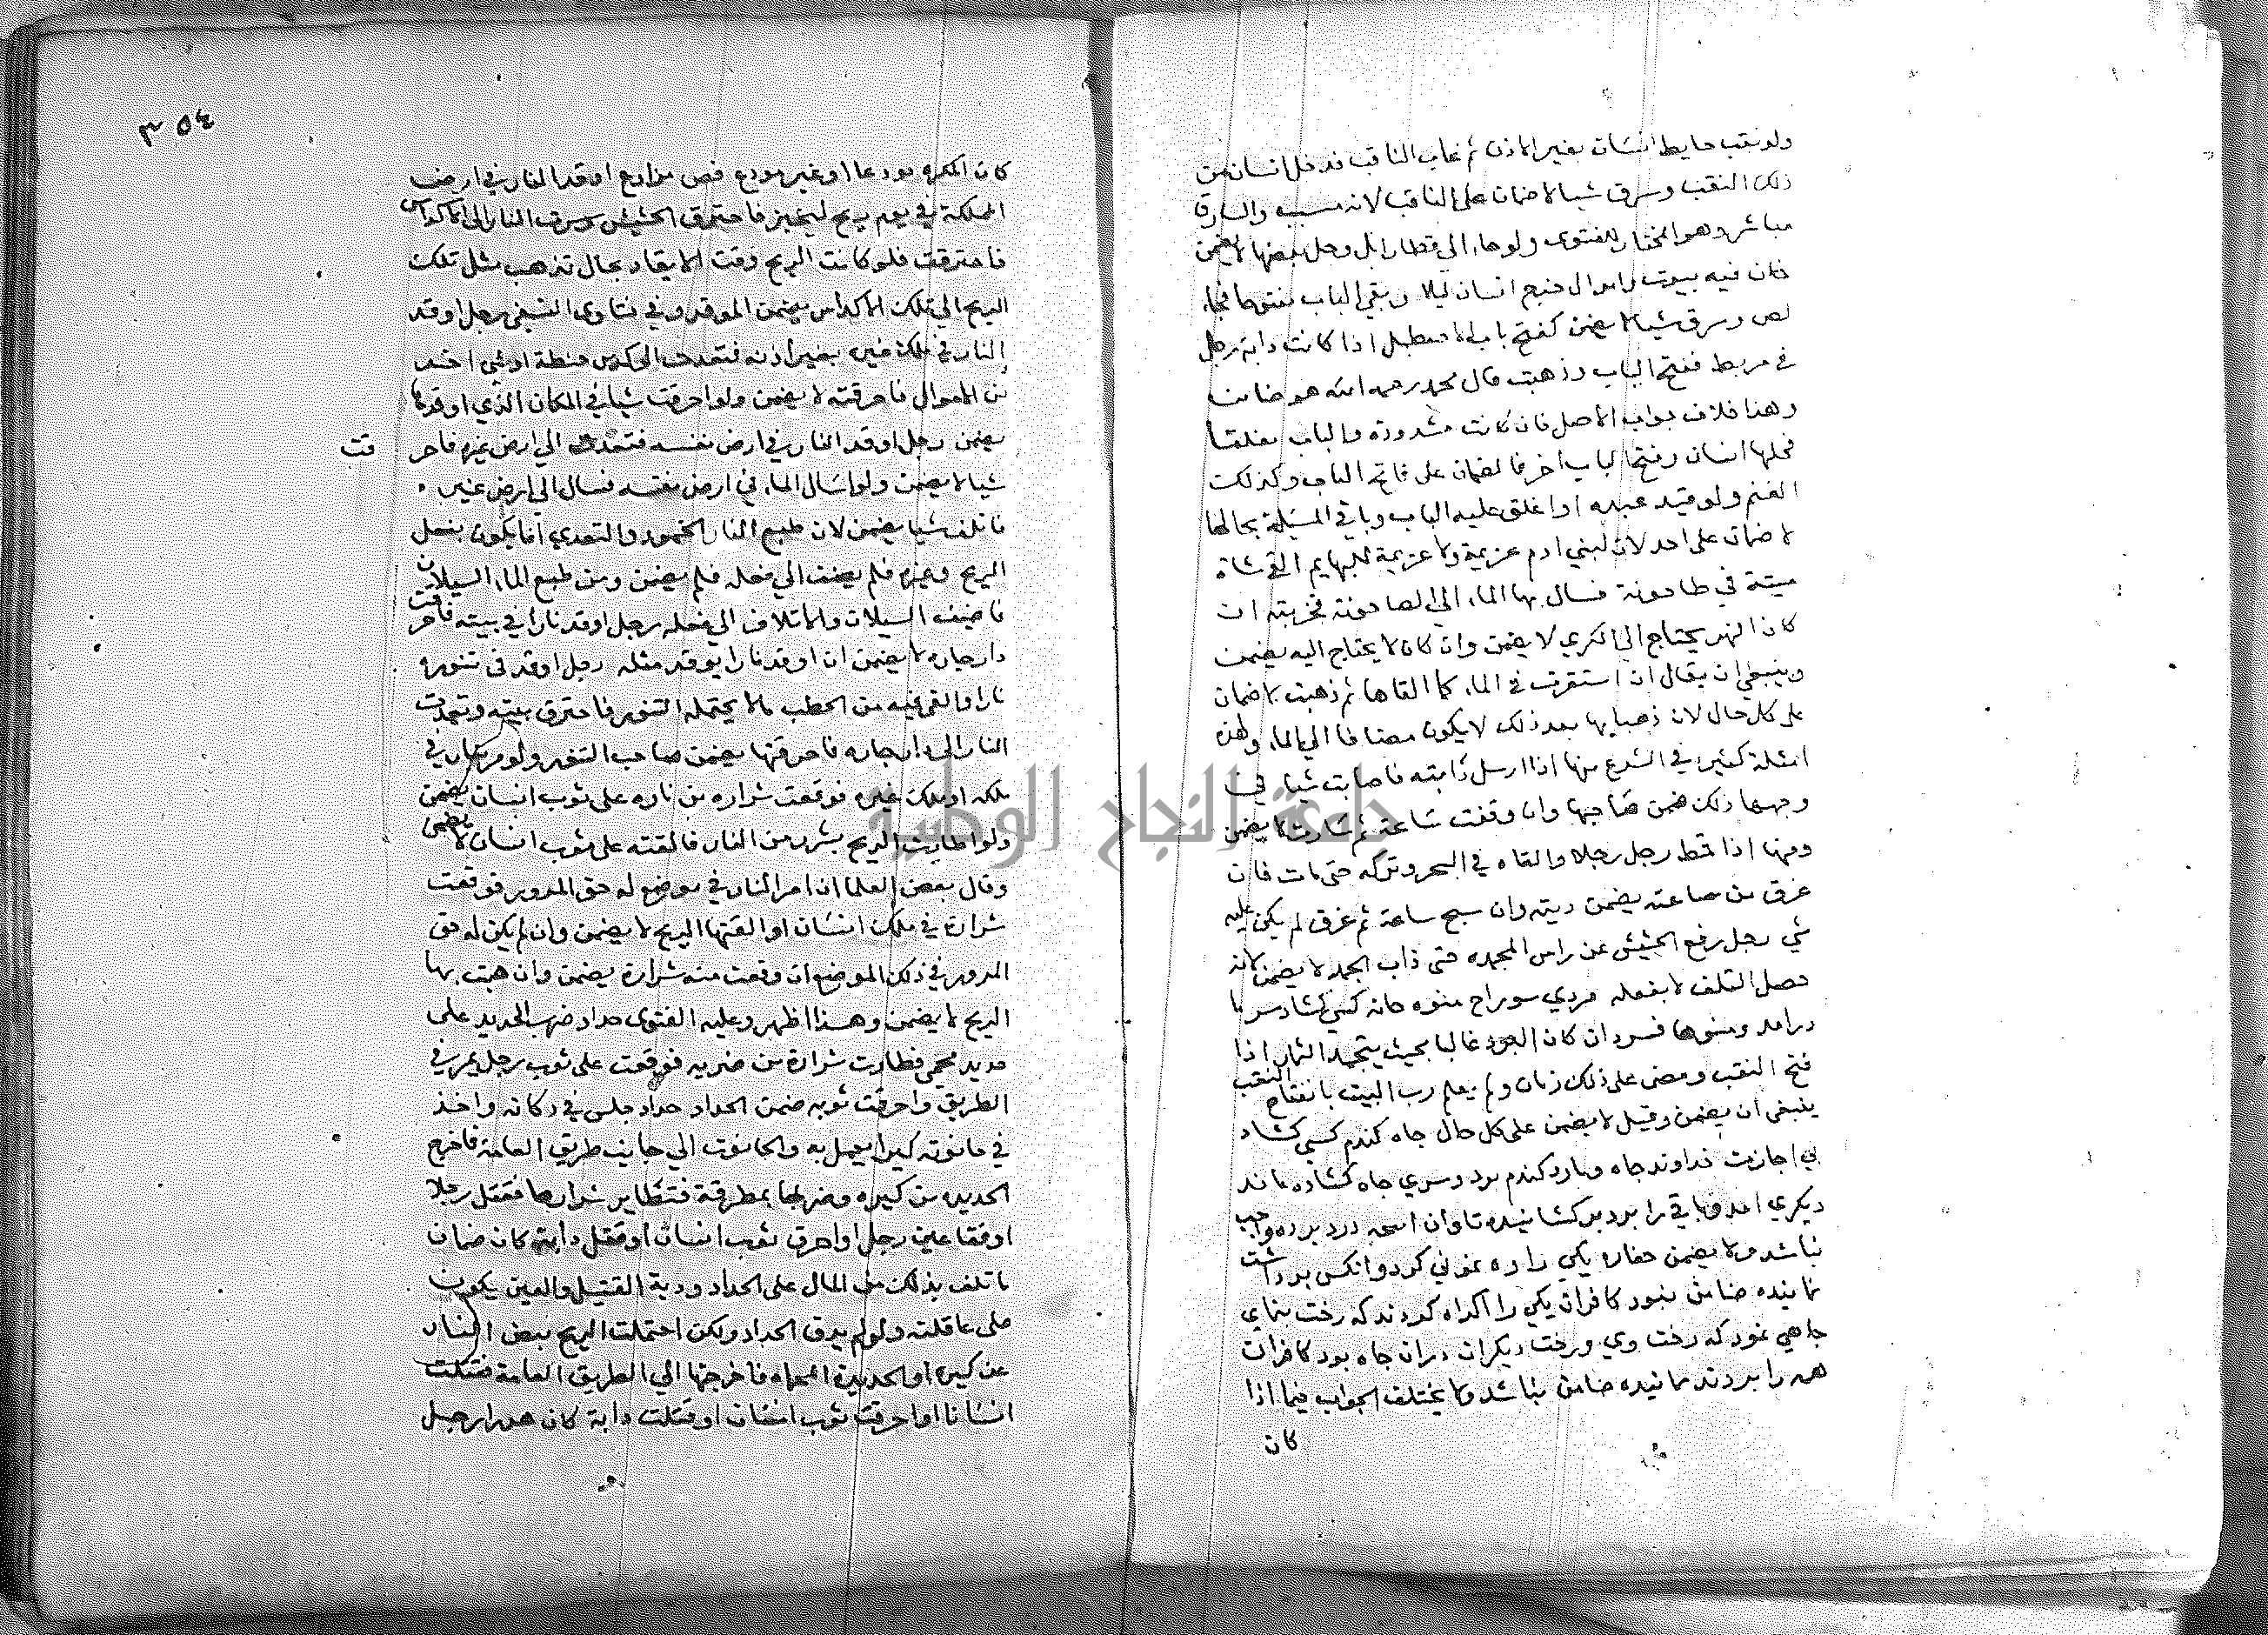 ولو نقب حايط انسان بغير الاذن ثم غاب الناقب فدخل انسان من
ذلك النقب وسرق شيا لا ضمان على الناقب لانه مسبب والسارق
مباشر وهو المختار للفتوى ولو جا الى قطار ابل وحل بعضها لا يضمن
خان فيه بيوت واموال فتح انسان ليلا وبقي الباب مفتوحا فجا
لص وسرق شيا لا يضمن كفتح باب الاصطبل اذا كانت دابة رجل
في مربط ففتح الباب وذهبت قال محمد رحمه الله هو ضامن
وهذا خلاف جواب الاصل فان كانت مشدودة والباب مغلقا
فحلها انسان وفتح الباب اخر فالضمان على فاتح الباب وكذلك
الغنم ولو قيد عبده او اغلق عليه الباب وباقي المسيلة بحالها
لا ضمان على احد لان لبني ادم عزيمة ولا عزيمة للبهايم القى شاة
ميتة في طاحونة فسال بها الما الى الطاحونة فخربته ان
كان النهر يحتاج الى الكري لا يضمن وان كان لا يحتاج اليه يضمن
وينبغي ان يقال ان استقرت في الما كما القاها ثم ذهبت لا ضمان
على كل حال لان ذهابها بعد ذلك لا يكون مضافا الى الما ولهذه
امثلة كثيرة في الشرع منها اذا ارسل دابته فاصابت شيا في
وجهها ذلك ضمن صاحبها وان وقفت ساعة ثم سارت لا يضمن
ومنها اذا قمط رجل رجلا والقاه في البحر وتركه حتى مات فان
غرق من ساعته يضمن ديته وان سبح ساعة ثم غرق لم يكن عليه
شي رجل رفع الحشيش عن راس المجمده حتى ذاب الجمد لا يضمن لانه
حصل التلف لا بفعله
فتح النقب ومضى على ذلك زمان ولم يعلم رب البيت بانفتاح النقب
ينبغي ان يضمن وقيل لا يضمن على كل حال جاه كندم كسي كشاد
بي اجازت خداوند جاه
نباشد ولا يضمن
نماينده ضامن نبود كافران يكي را اكراه كردند كه رخت بنماي
جاهي نمود كه رخت وي ورخت ديكران دران جاه بود كافران
همه را بردند نماينده ضامن نباشد ولا يختلف الجواب فيما اذا
كان
٣٥٤
كان المكره مودعا او غير مودع اوقد النار في ارض
المملكة في يوم ريح فاحترق الحشيش وسرت النار الى الاكداس
فاحترقت فلو كانت الريح وقت الايقاد بحال تذهب مثل تلك
الريح الى تلك الاكداس يضمن الموقد وفي فتاوى النسفي رجل اوقد
النار في ملك غيره بغير اذنه فتعدت الى كدس حنطة او شي اخر
من الاموال فاحرقته لا يضمن ولو احرقت شيا في المكان الذي اوقدها
يضمن رجل اوقد النار في ارض نفسه فتعدت الى ارض غيره فاحر
قت
شيا لا يضمن ولو اسال الما في ارض نفسه فسال الى ارض غيره
فاتلف شيا يضمن لان طبع النار الخمود والتعدي انما يكون بفعل
الريح وغيره فلم يضف الى فعله فلم يضمن ومن طبع الما السيلان
فاضيف السيلان والاتلاف الى فعله رجل اوقد نارا في بيته فاحرقت
دار جاره لا يضمن ان اوقد نارا يوقد مثله رجل اوقد في تنوره
نارا والقى فيه من الحطب ما لا يحتمله التنور فاحترق بيته وتعدت
النار الى دار جاره فاحرقتها يضمن صاحب التنور ولو مر بنار في
ملكه او ملك غيره فوقعت شراره من ناره على ثوب انسان يضمن
ولو اطارت الريح بشرر من النار فالقته على ثوب انسان لا يضمن
وقال بعض العلما ان امر النار في موضع له حق المرور فوقعت
شرارة في ملك انسان او القتها الريح لا يضمن وان لم يكن له حق
المرور في ذلك الموضع ان وقعت منه شرارة يضمن وان هبت بها
الريح لا يضمن وهذا اظهر وعليه الفتوى حداد ضرب الحديد على
حديد محمي فطارت شرارة من ضربه فوقعت على ثوب رجل يمر في
الطريق واحرقت ثوبه ضمن الحداد حداد جلس في دكانه واخذ
في حانوته كيرا يعمل به والحانوت الى جانب طريق العامة فاخرج
الحديده من كيره وضربها بمطرقة فتطاير شرارها فقتل رجلا
او فقا عين رجل او احرق ثوب انسان او قتل دابة كان ضمان
ما تلف بذلك من المال على الحداد ودية القتيل والعين يكون
على عاقلته ولو لم يدق الحداد ولكن احتملت الريح بعض النار
عن كيره او الحديدة المحماه فاخرجتها الى الطريق العامة فقتلت
انسانا او احرقت ثوب انسان او قتلت دابة كان هدرا رجل
جامعة النجاح الوطنية